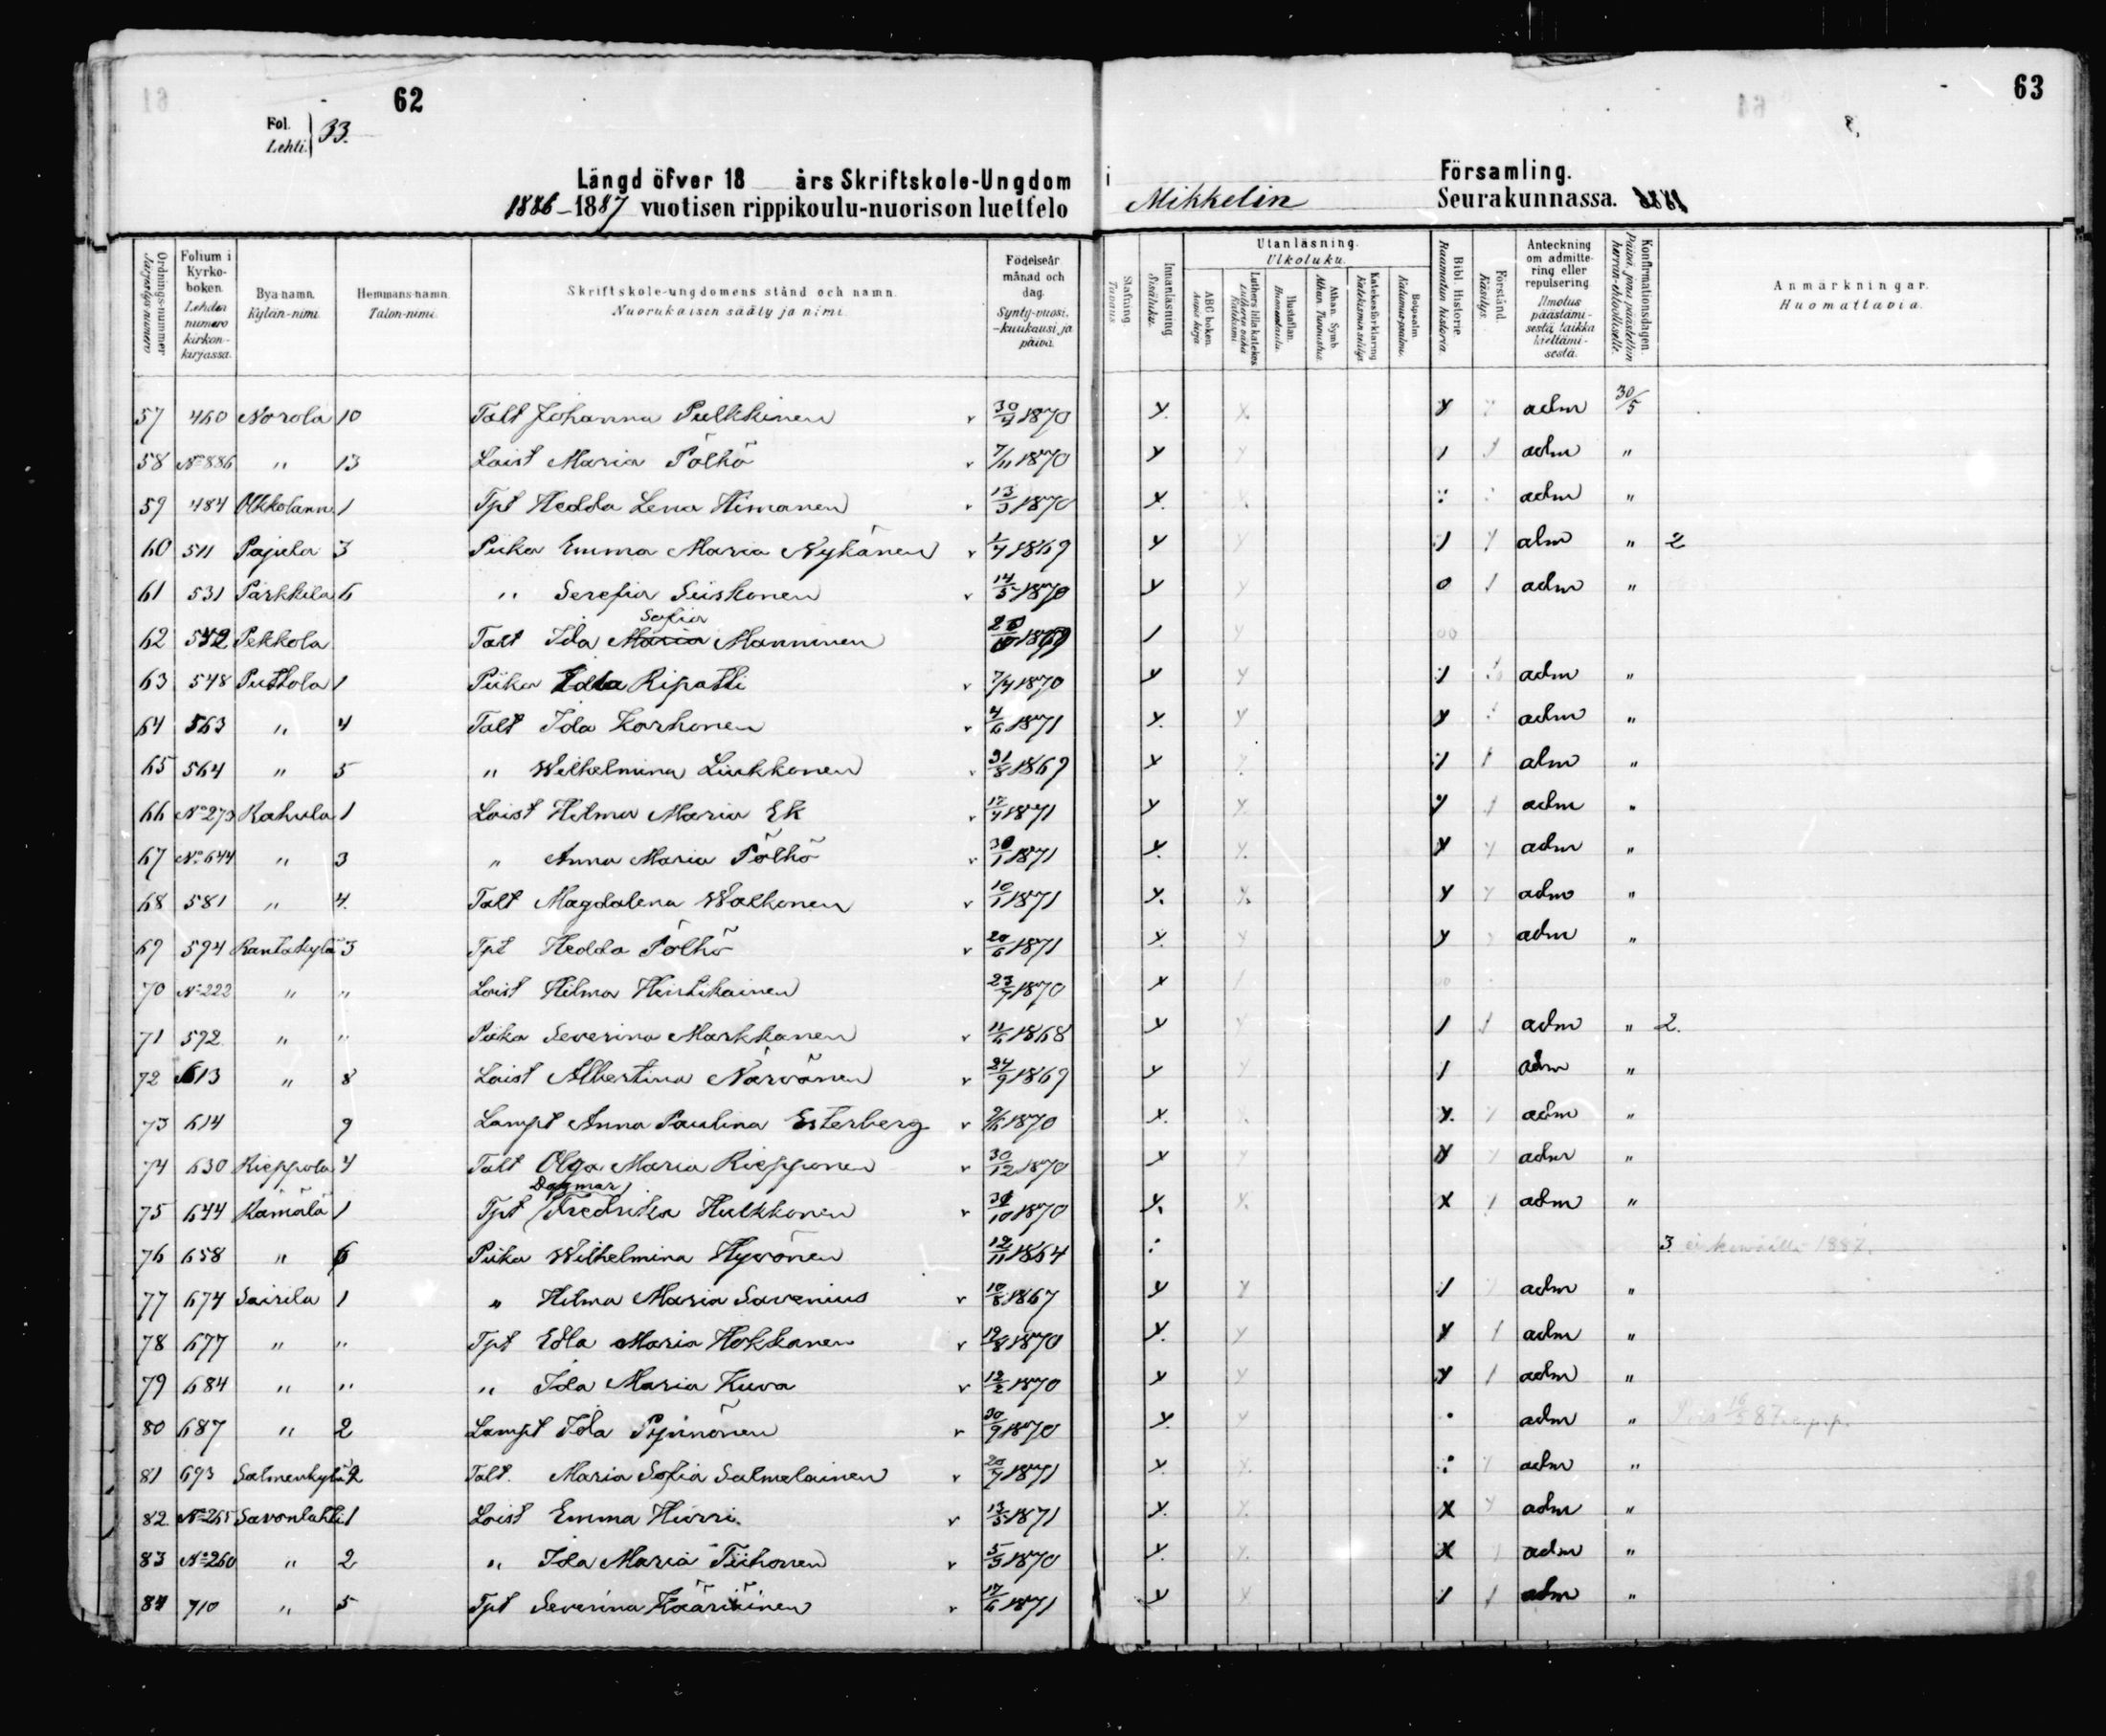 62
63
Fol.
Lehti. 33.
Längd öfver 18 års Skriftskole-Ungdom i Församling.
1886-1887 vuotisen rippikoulu-nuorison luettelo Mikkelin Seurakunnassa.
Ordningsnummer Järjestysnumero
Folium i Kyrkoboken. Lehden numero kirkonkirjassa.
Bya namn. Kylän-nimi.
Hemmans-namn. Talon-nimi.
Skriftskole-ungdomens stånd och namn. Nuorukaisen sääty ja nimi.
Födelseår månad och dag. Synty-vuosi, -kuukausi ja päivä.
Stafning. Tavuus
Innanläsning. Sisäluku.
Utanläsning. Ulkoluku.
ABC boken. Aapis kirja.
Luthers lilla katekes Lutherin vähä Katekismi
Hustaflan. Huoneentaulu.
Athan. Symb. Athan. Tunnustus.
Katekesförklaring Katekismin selitys.
Botpsalm. Katumus-psalmi.
Bibl. Historie. Raamatun historia.
Förstånd. Käsitys.
Anteckning om admittering eller repulsering. Ilmotus päästämisestä taikka kieltämisestä.
Konfirmationsdagen. Päivä, jona päästettiin herran ehtoolliselle.
Anmärkningar. Huomattavia.
57 460 Norola 10 Talt Johanna Pulkkinen v 30/4 1870 y. x. y y adm 30/5
58 No 886 " 13 Loist Maria Pöłhö v 7/11 1870 y y / / adm "
59 484 Olkkolann. 1 Tpt Hedda Lena Himanen v 13/3 1870 x. : adm "
60 511 Pajula 3 Piika Emma Maria Nykänen v 1/7 1869 y y / y adm " 2
61 531 Parkkila 6 " Serefia Siiskonen v 14/5 1870 y y o / adm "
62 532 Pekkola Talt Ida Sofia Manninen 1869 / y oo
63 548 Puttola 1 Piika Edla Ripatti v 7/4 1870 y y / adm "
64 563 " 4 Talt Ida Korhonen v 4/6 1871 y. y y adm "
65 564 " 5 " Wilhelmina Liukkonen 31/8 1869 y y / / adm "
66 No 273 Rahula 1 Loist Hilma Maria Ek v 17/4 1871 y y y / adm "
67 No 644 " 3 " Anna Maria Pöłhö v 30/1 1871 y. y. y y adm "
68 581 " 4. Talt Magdalena Walkonen v 10/1 1871 y. y. y y adm "
69 594 Rantakylä 3 Tpt Hedda Pöłhö v 20/6 1871 y. y y adm "
70 No 222 " " Loist Hilma Hintikainen 23/7 1870 x / oo
71 592 " " Piika Severina Markkanen v 11/6 1868 y y / / adm " 2.
72 613 " 8 Loist Albertina Närvänen v 24/9 1869 y y / adm "
73 614 9 Lampt Anna Paulina Esterberg v 9/6 1870 x. y. y adm "
74 630 Rieppola 4 Talt Olga Maria Riepponen v 30/12 1870 y y y adm "
Dagmar
75 644 Rämälä 1 Tpt Fredrika Hulkkonen v 31/10 1870 y. y. x / adm "
76 658 " 6 Piika Wilhelmina Hyvönen 12/11 1864 : 3 ei keväällä 1887.
77 674 Sairila 1 " Hilma Maria Savenius v 10/8 1867 y y / adm "
78 677 " " Tpt Edla Maria Hokkanen v 19/8 1870 y. y y / adm "
79 684 " " " Ida Maria Kuva v 12/2 1870 y y y / adm "
80 687 " 2 Lampt Ida Pynnönen v 30/9 1870 y. y . adm "
81 693 Salmenkylä 2 Talt. Maria Sofia Salmelainen v 20/7 1871 y. y. : y adm "
82 No 265 Savonlahti 1 Loist Emma Hirvi. v 13/5 1871 y. y. x y adm "
83 No 260 " 2 " Ida Maria Tiihonen v 5/3 1870 y. y. x adm "
84 710 " 5 Tpt Severina Kääriäinen v 17/6 1871 y y / / adm "